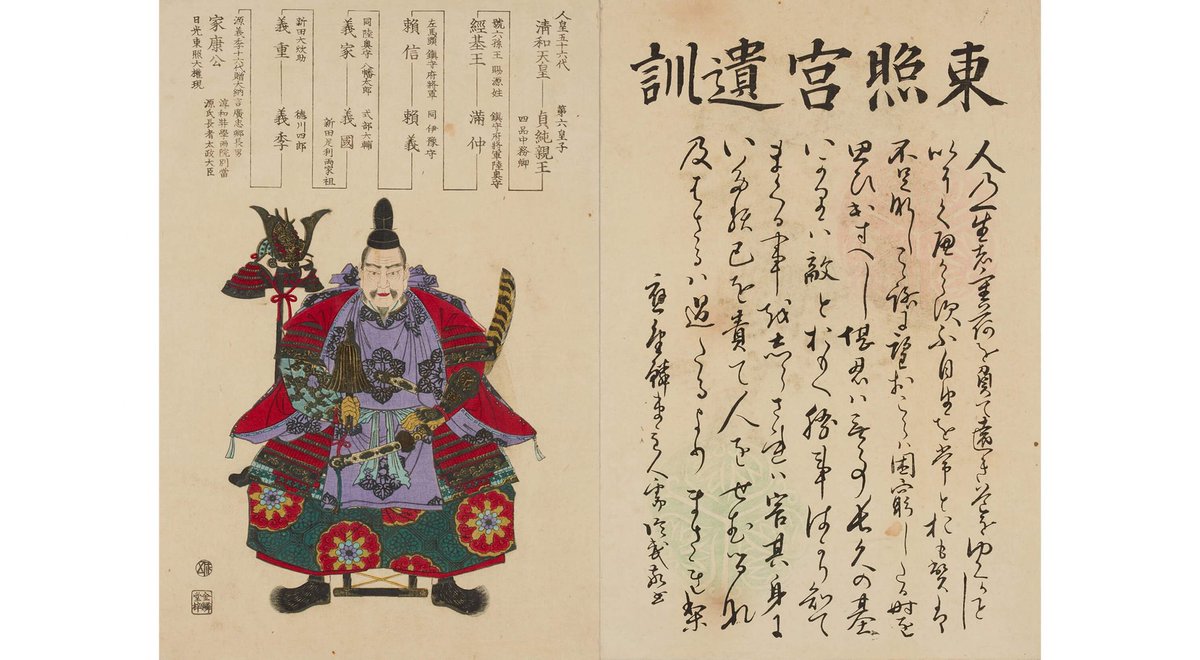 東照宮遺訓
人乃一生者重荷を負て遠き道をゆくかことし
以そくへから須不自由を常とおも盤
不足那しこゝ路に望おこらハ困窮したる時を
思ひ出すへし堪忍ハ無事長久の基
いかりハ敵とおもへ勝事はかり知て
まくる事越志らされハ害其身に
いたる己を責て人をせむるな
及はさるハ過たるよりまされ梨
主人需
人皇五十六代
清和天皇
第六皇子
貞純親王
四品中務卿
號六孫王 賜源姓
經基王
滿仲
鎮守府將軍陸奥守
左馬頭 鎮守府將軍
頼信
同 伊豫守
頼義
同陸奥守 八幡太郎
義家
式部大輔
義國
新田足利両家祖
新田大炊助
義重
徳川四郎
義季
源義季十六代贈大納言廣忠卿長男
家康公
淳和奨學両院別當
日光東照大権現
源氏長者太政大臣
金鱗堂梓